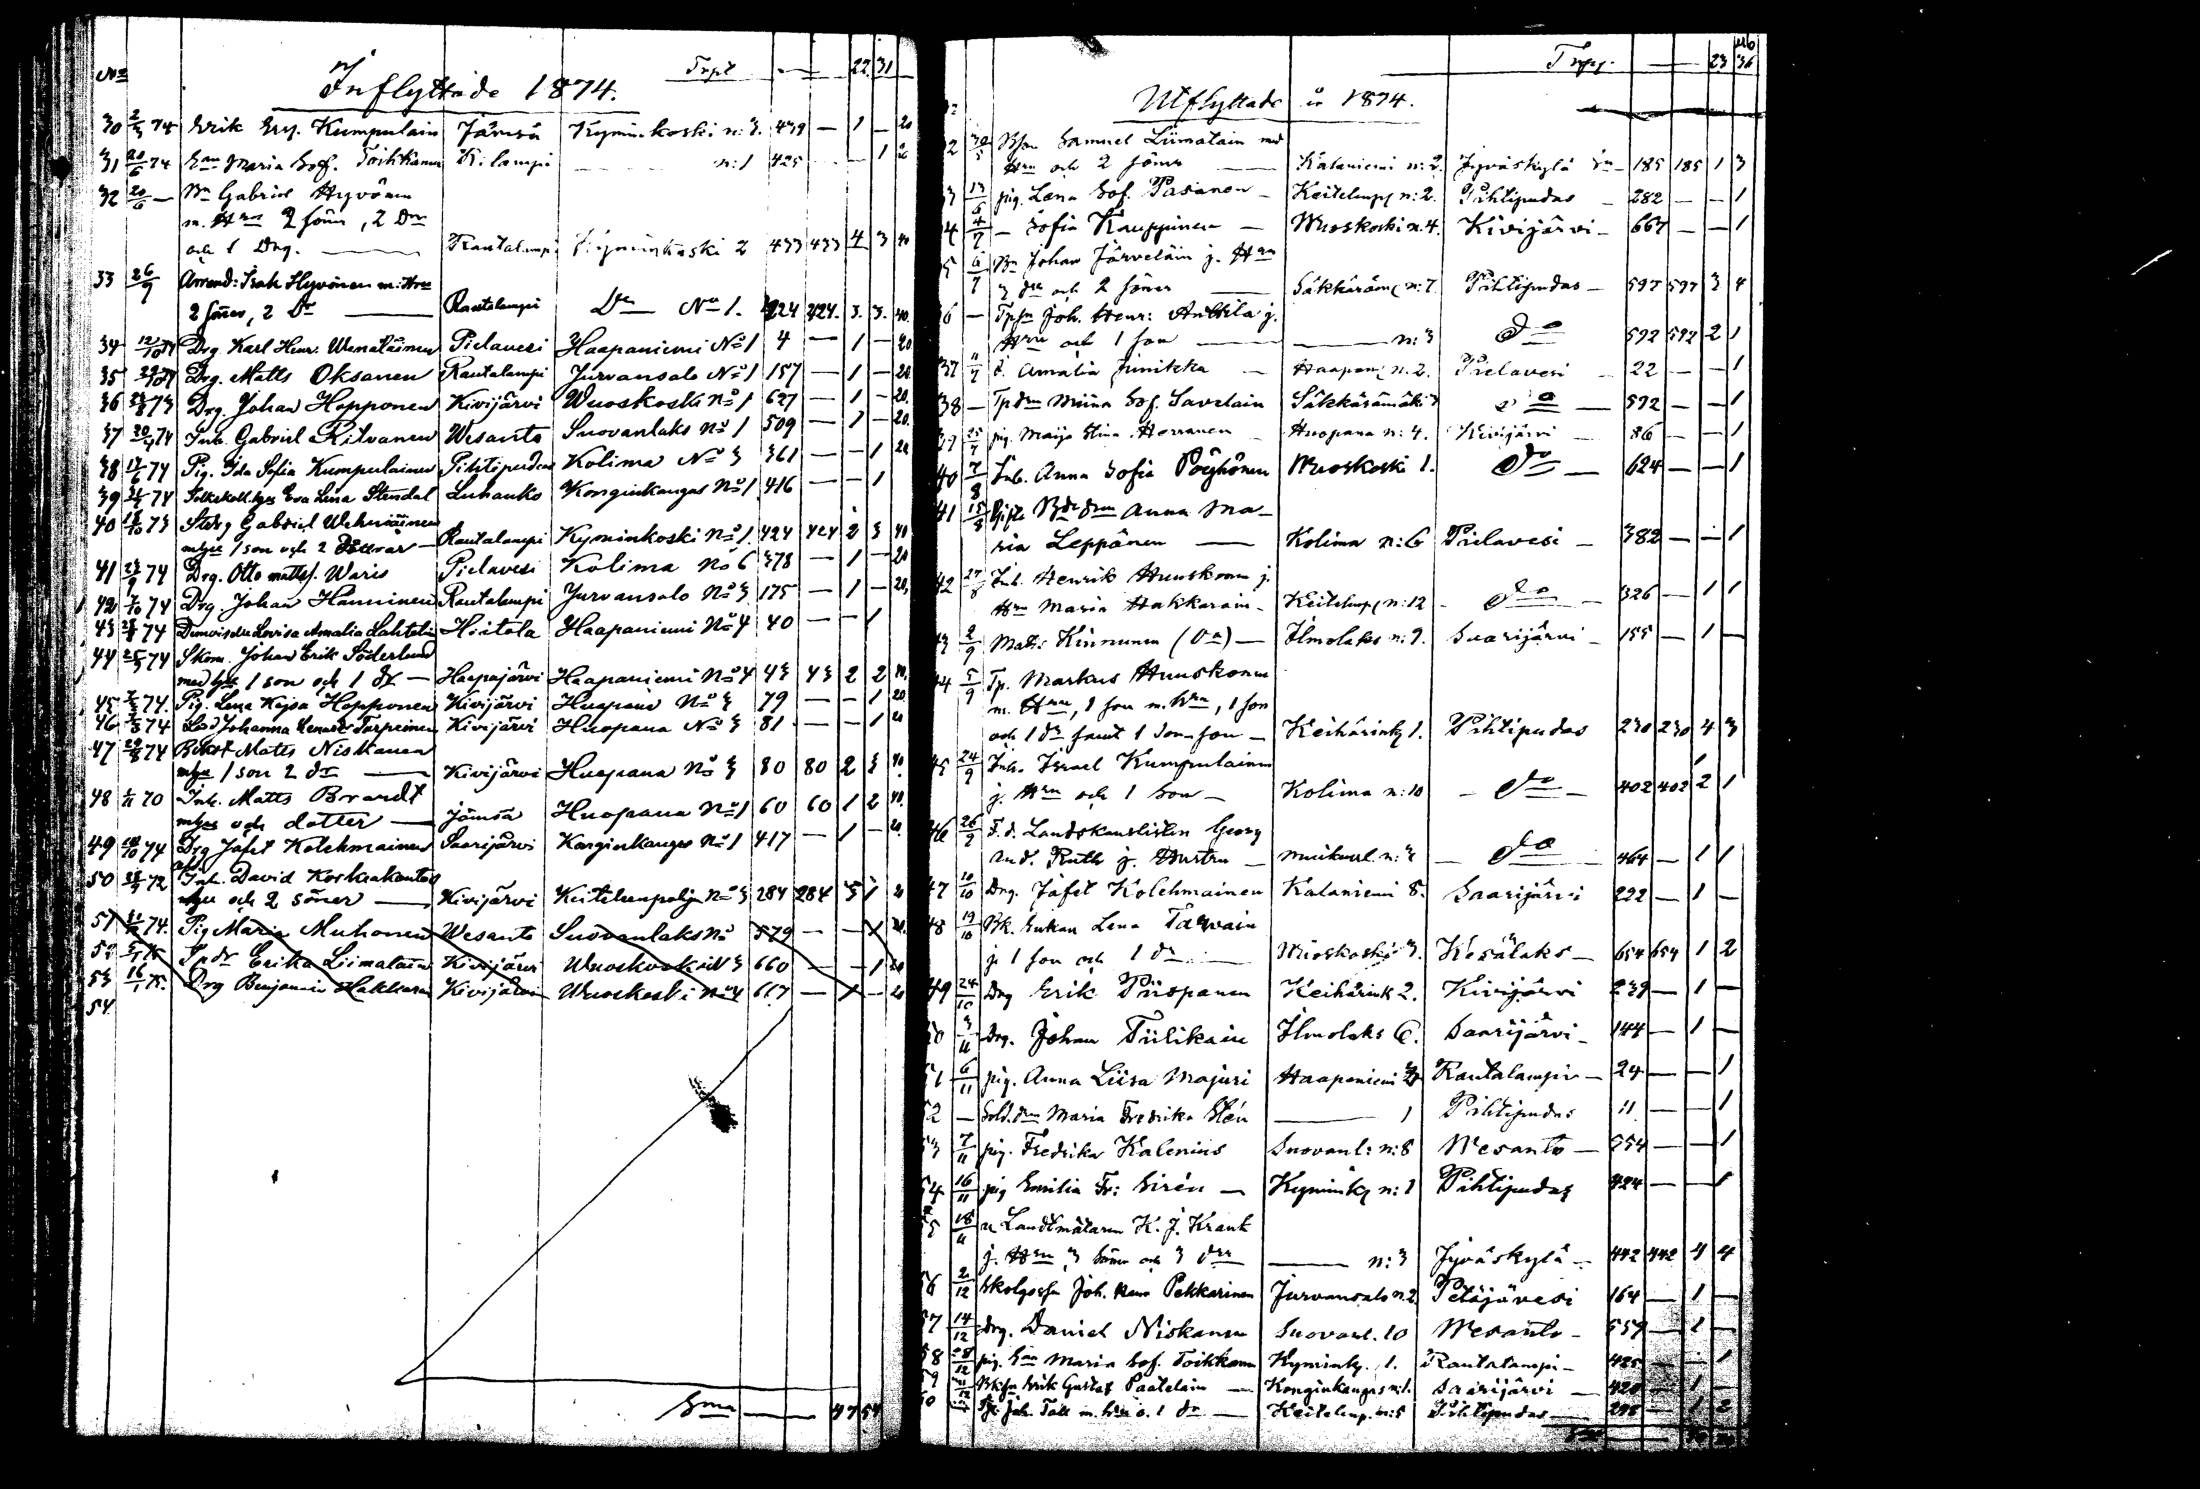 No
Trpt — 22 31
Inflyttade 1874.
30 2/3 74 Erik Erss. Kumpulain Jämsä Kyminkoski n:3. 439 — 1 — 20
31 20/6 74 Maria Sof. Toikkanen n:1 425 — 1 20
32 20/6 — Bn Gabriel Hyvönen
m. Hru 2 söner, 2 Dr
och 1 Drg. — Rautalampi Kyminkoski 2 433 433 4 3 40
33 26/9 Arrend: Isak Hyvönen m: Hru
2 söner, 2 Dr — Rautalampi Do No 1. 424 424. 3. 3. 40.
34 12/10 74 Drg. Karl Henr. Wenäläinen Pielavesi Haapaniemi No 1 4 — 1 — 20
35 Drg. Matts Oksanen Rautalampi Jurvansalo No 1 157 — 1 — 20
36 73 Drg. Johan Hopponen Kivijärvi Wuoskoski No 1 627 — 1 — 20.
37 74 Inh. Gabriel Ritvanen Wesanto Suovanlaks No 1 509 — 1 — 20.
38 74 Pig. Ida Sofia Kumpulainen Pihtipudas Kolima No 3 361 — — 1 20
39 74 Eva Lena Stendal Luhanko Konginkangas No 1 416 — — 1
40 73 Gabriel
mhu 1 son och 2 döttrar — Rautalampi Kyminkoski No 1 424 424 2 3 40
41 74 Drg. Otto Mattsf. Waris Pielavesi Kolima No 6 378 — 1 — 20
42 74 Drg. Johan Hänninen Rautalampi Jurvansalo No 3 175 — 1 — 20,
43 74 Lovisa Amalia Lahtela Hiitola Haapaniemi No 4 40 — — 1
44 74 Skom. Johan Erik Söderlund
med hu 1 son och 1 dr — Haapajärvi Haapaniemi No 4 43 43 2 2 40.
45 74. Pig. Lena Kajsa Hopponen Kivijärvi Huopana No 3 79 — — 1 20
46 74 Johanna Tarpeinen Kivijärvi Huopana No 3 81 — — 1 20
47 74 Matts Niskanen
mhu 1 son 2 dr — Kivijärvi Huopana No 3 80 80 2 3 40.
48 70 Inh. Matts Brandt
mhu och dotter — Jämsä Huopana No 1 60 60 1 2 40.
49 74 Drg Jafet Kolehmainen Saarijärvi Konginkangas No 1 417 — 1 — 20
50 72 Inh. David
mhu och 2 söner — Kivijärvi Keitelenpohja No 3 284 284 3 1 20
51 74. Pig Maria Muhonen Wesanto Suovanlaks No 579 — — 1 20.
52 75 Erika Liimatain Kivijärvi Wuoskoski N 3 660 — — 1 20
53 16/1 75. Drg Benjamin Hakkarain Kivijärvi Wuoskoski No 4 667 — 1 — 20
54
Sma — 47 54
Trpt — 23 36
Utflyttade år 1874.
2 Samuel Liimatain med
Hru och 2 söner — Kalaniemi n:2. Jyväskylä 185 185 1 3
3 13/6 pig. Lena Sof. Pasanen — n:2. Pihtipudas — 282 — — 1
4 4/7 — Sofia Kauppinen — Wuoskoski n. 4. Kivijärvi — 667 — — 1
5 6/7 Bn Johan Järveläin j. Hru
3 dr och 2 söner — Säkkäräm. n: 7. Pihtipudas — 597 597 3 4
36 — Joh. Henr: Anttila j.
Hru och 1 son — n:3 Do 592 592 2 1
37 Amalia — Haapan n. 2. Pielavesi — 22 — — 1
38 — Miina Sof. Savelain Säkkärämäki 3 Do — 592 — — 1
39 25/7 pig. Maija Stina Horranen Huopana n: 4. Kivijärvi — 86 — — 1
40 7/8 Inh. Anna Sofia Pöyhönen Wuoskoski 1. Do — 624 — — 1
41 15/8 Anna Ma-
ria Leppänen — Kolima n:6 Pielavesi — 382 — — 1
42 27/8 Inh. Henrik Huuskonen j.
Hru Maria Hakkarain — n:12 — Do — 326 — 1 1
43 2/9 Matts Kinnunen — Ilmolaks n: 9. Saarijärvi — 155 — 1 —
44 5/9 Tp. Markus Huuskonen
m. Hru, 1 son m. hru, 1 son
och 1 dr samt 1 son-son — Keihärink 1. Pihtipudas 230 230 4 3
45 24/9 Inh. Israel Kumpulainen
j. Hru och 1 son — Kolima n:10 — Do — 402 402 2 1
46 26/9 F. d. Landskanslisten Georg
And. Ruth j. Hustru — n: Do 464 — 1 1
47 10/10 Drg. Jafet Kolehmainen Kalaniemi 8. Saarijärvi 222 — 1 —
48 19/10 Bk. Enkan Lena Tarvain
j. 1 son och 1 dr Wuoskoski 3. Kesälaks — 654 654 1 2
49 24/10 Drg Erik Piispanen Keihärink 2. Kivijärvi 239 — 1 —
50 Drg. Johan Tiilikain Ilmolaks 6. Saarijärvi — 144 — 1 —
51 6/11 pig. Anna Liisa Majuri Haapaniemi Rautalampi — 24 — — 1
52 — Maria Fredrika Stén — 1 Pihtipudas 11 — — 1
53 7/11 pig. Fredrika Kalenius Suovanl: n:8 Wesanto — 554 — — 1
54 16/11 pig Emilia Fr: Sirén — Kymink n: 1 Pihtipudas 424 — — 1
55 18/11 Landtmätaren K. J. Krank
j. Hru 3 söner och 3 drr — n: 3 Jyväskylä — 442 442 4 4
56 2/12 Joh. Pekkarinen Jurvansalo n. 2. Petäjävesi 164 — 1 —
57 14/12 Drg. Daniel Niskanen Suovanl. 10 Wesanto — 559 — 1 —
58 28/12 pig. Maria Sof. Toikkanen Kymink. 1. Rautalampi — 425 — — 1
59 Erik Gustaf Paatelain — Konginkangas n: 1. Saarijärvi — 420 — 1 —
60 Joh. m. hru o. 1 dr — n: 5 Pihtipudas — 1 2